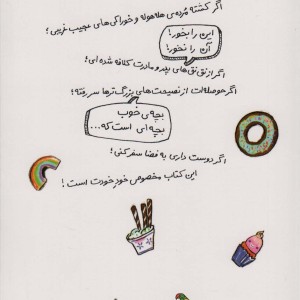 اگر کشته مُرده‌ی هله‌هوله و خوراکی‌های عجیب غریبی؛
این را بخور!
آن را نخور!
اگر از نق‌نق‌های پدر و مادرت کلافه شده‌ای؛
اگر حوصله‌ات از نصیحت‌های بزرگ‌ترها سر رفته؛
بچه‌ی خوب
بچه‌ای است که...
اگر دوست داری به فضا سفر کنی؛
این کتاب مخصوص خودِ خودت است!